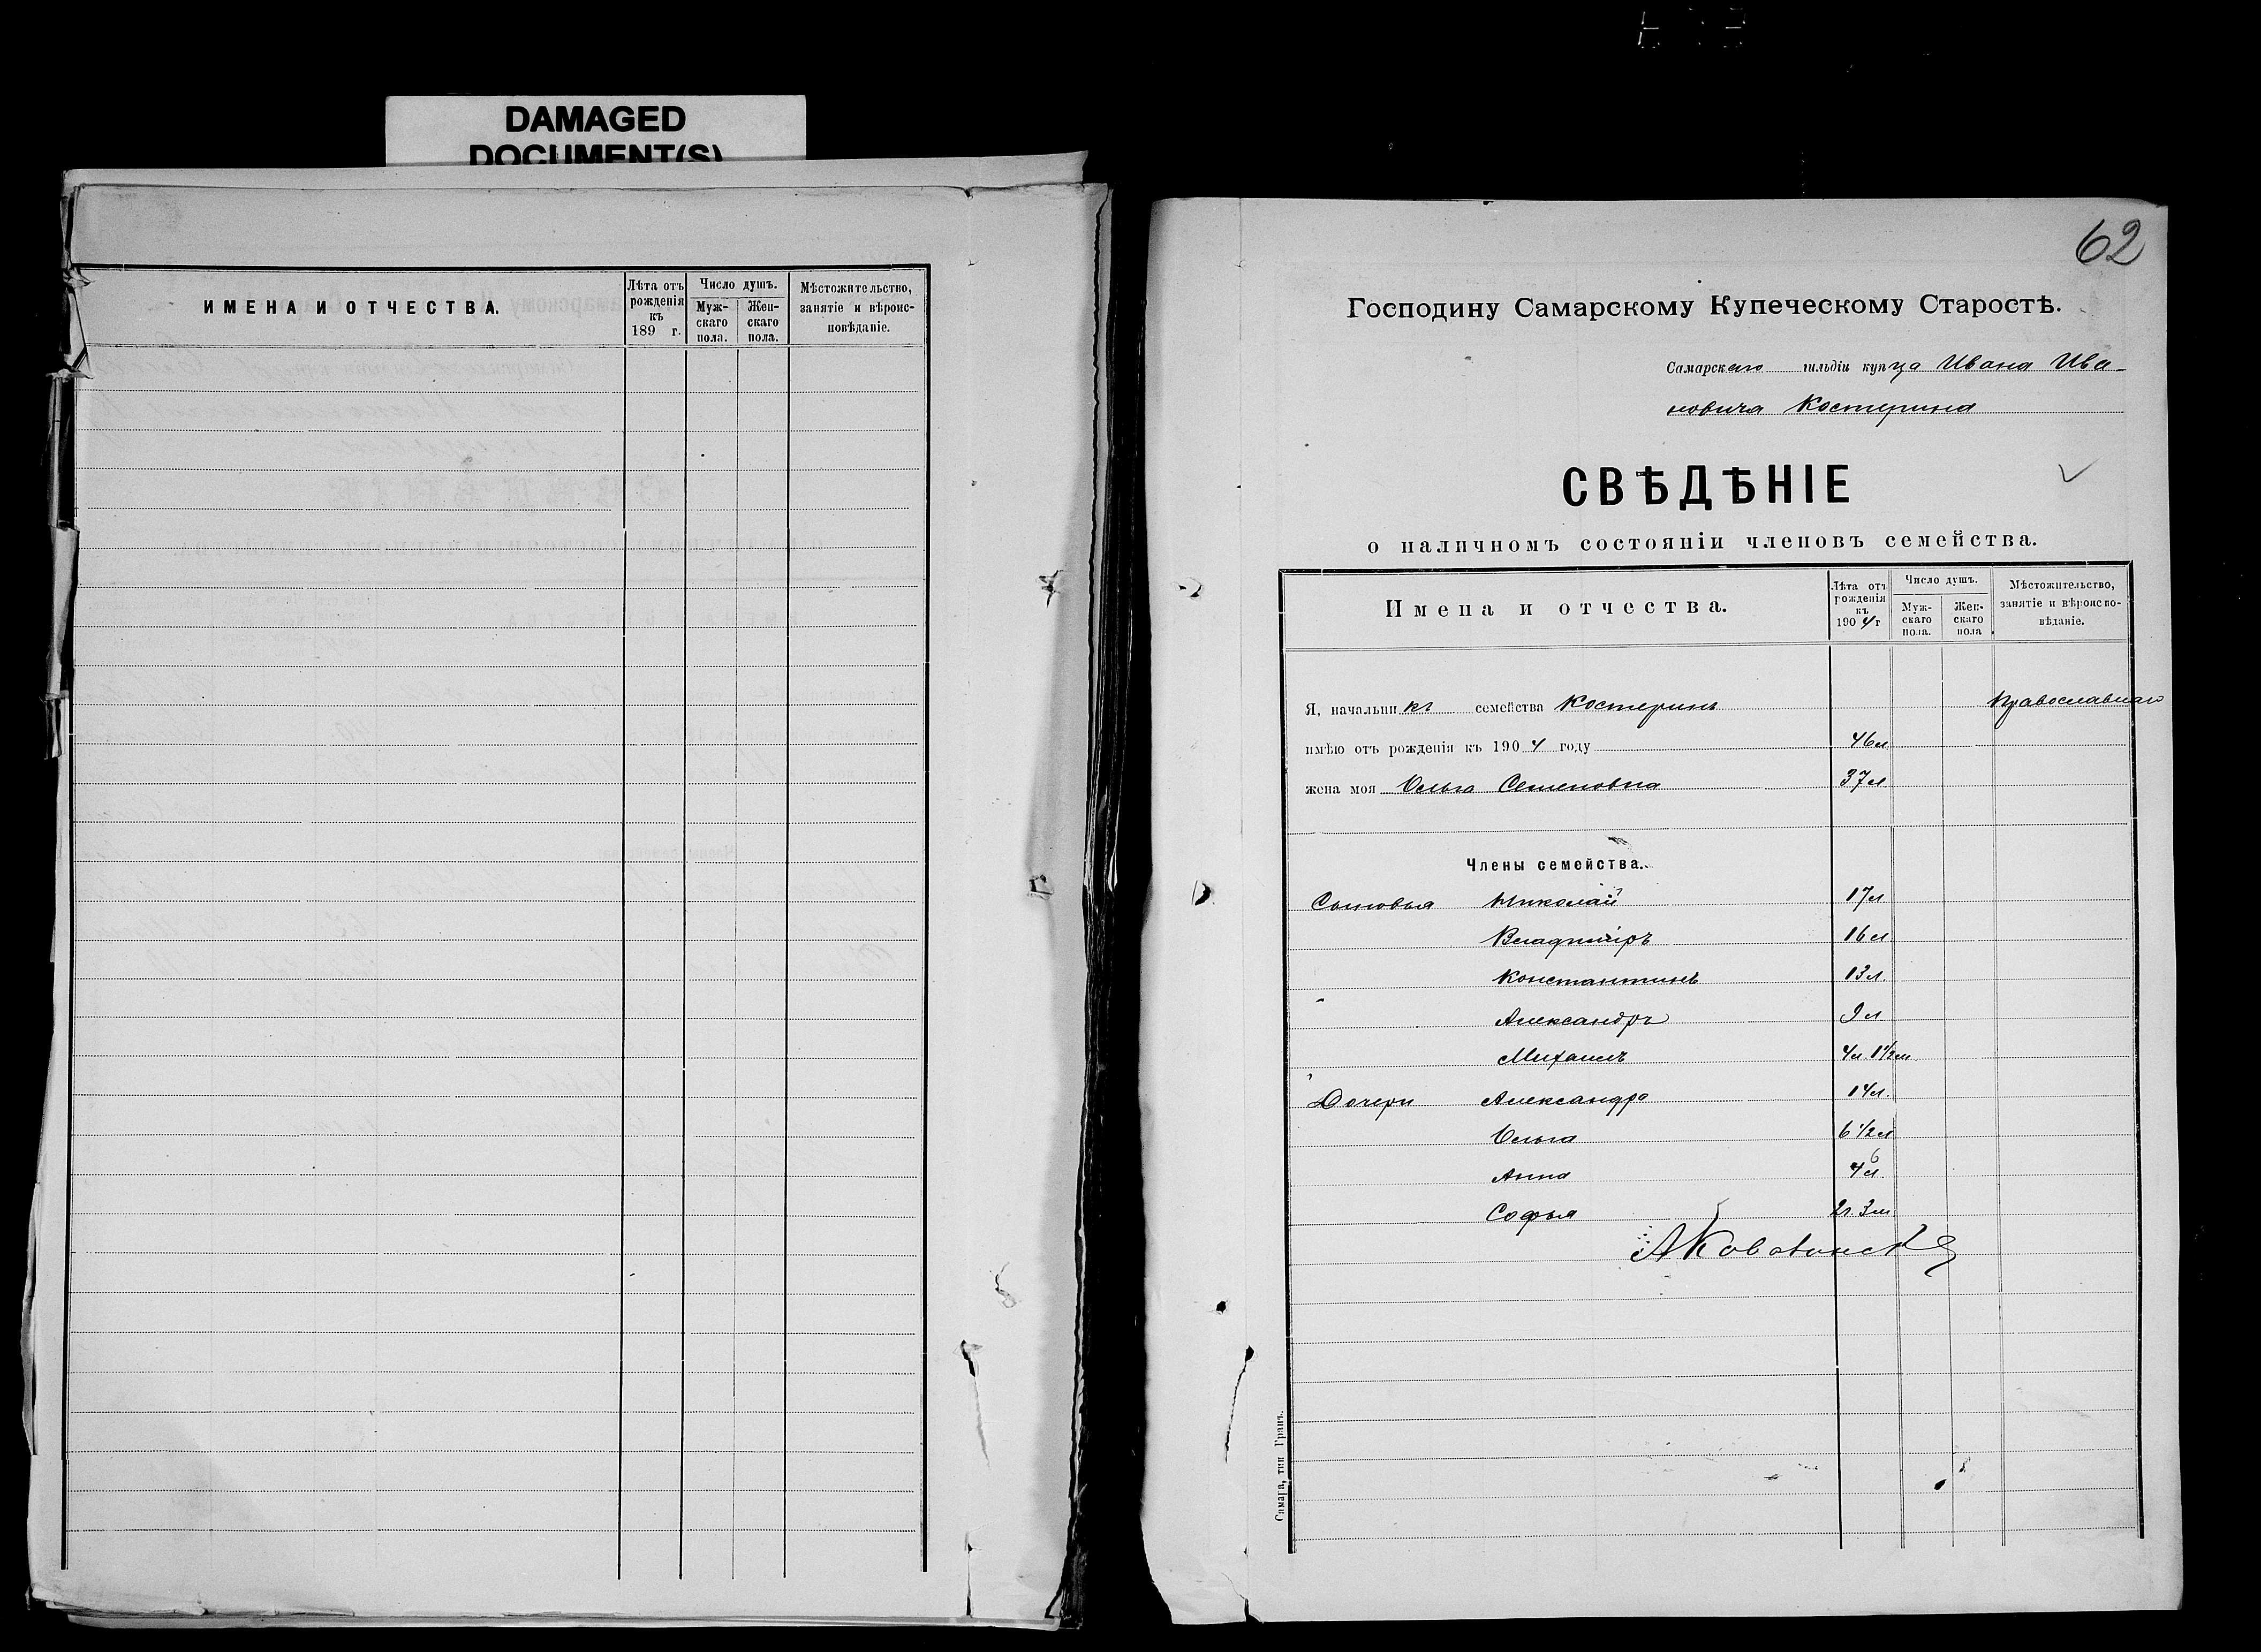 DAMAGED
DOCUMENT(S)
ИМЕНА И ОТЧЕСТВА.
Лѣта отъ рожденія къ 189 г.
Число душъ.
Мужскаго пола.
Женскаго пола.
Мѣстожительство, занятіе и вѣроисповѣданіе.
62
Господину Самарскому Купеческому Старостѣ.
Самарскаго гильдіи купца Ивана Ива-
новича Костерина
СВѢДѢНІЕ
о наличномъ состояніи членовъ семейства.
Имена и отчества.
Лѣта отъ рожденія къ 1904 г
Число душъ.
Муж-скаго пола.
Жен-скаго пола
Мѣстожительство, занятіе и вѣроиспо-вѣданіе.
Я, начальникъ семейства Костеринъ Православнаго
имѣю отъ рожденія къ 1904 году 46 л
жена моя Ольга Семеновна 37 л
Члены семейства.
Сыновья Николай 17 л
Владиміръ 16 л
Константинъ 13 л.
Александръ 9 л
Михаилъ 4 л. 1 1/2 м
Дочери Александра 14 л.
Ольга 6 1/2 л
Анна 4 л.
Софья 2 г. 3 м
Самара, тип Гранъ.